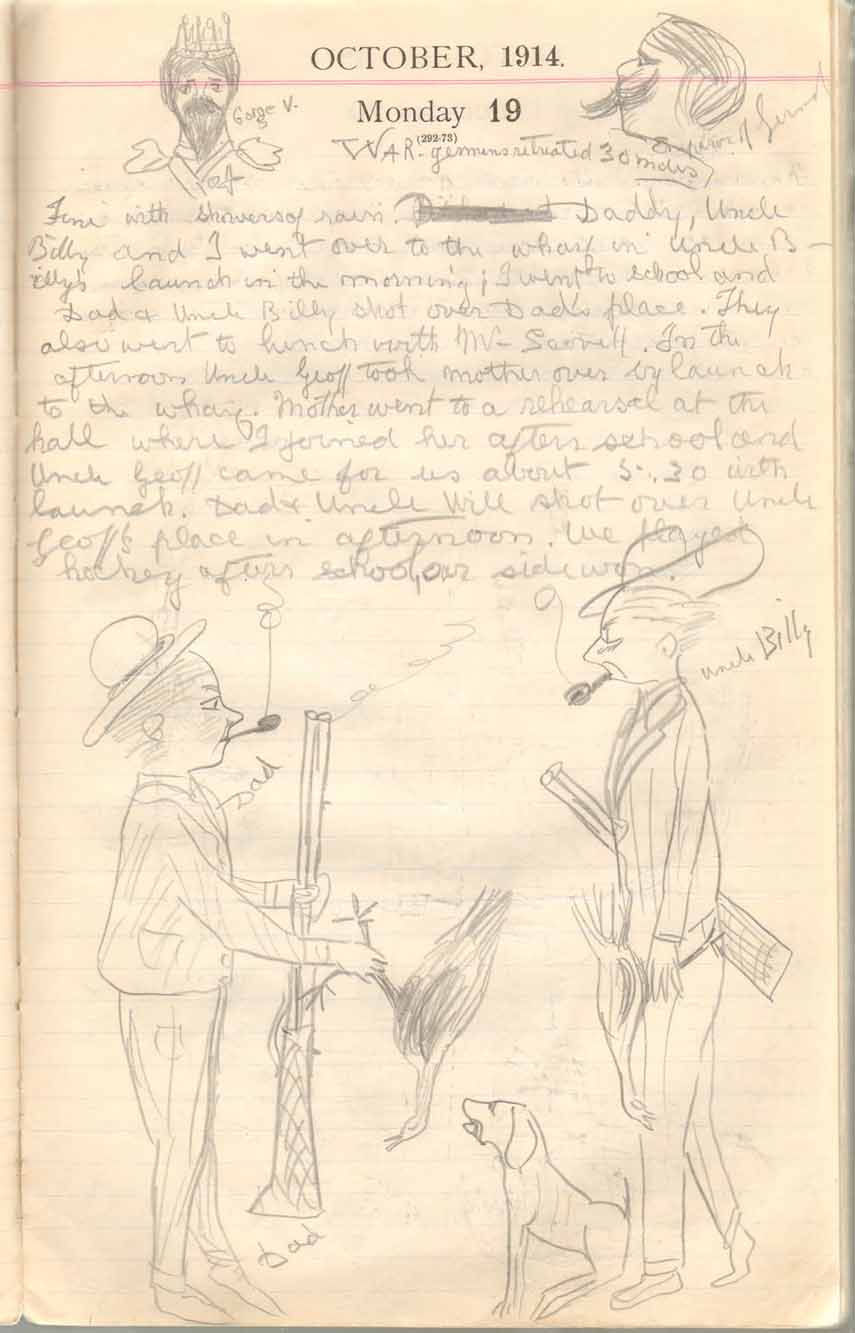 OCTOBER, 1914.
Gorge V.
Monday 19
(292-73)
WAR - germens retreated 30 miles
Emperor of
Fine with showers of rain. Daddy, Uncle
Billy and I went over to the wharf in Uncle B-
illy's launch in the morning; I went to school and
Dad & Uncle Billy shot over Dad's place. They
also went to lunch with Mr
In the
afternoon Uncle Geoff took mother over by launch
to the wharf. Mother went to a rehearsel at the
hall where I joined her after school and
Uncle Geoff came for us about 5.30 with
launch. Dad & Uncle Will shot over Uncle
Geoff's place in afternoon. We played
hockey after school, our side won.
Uncle Billy
Dad
Dad